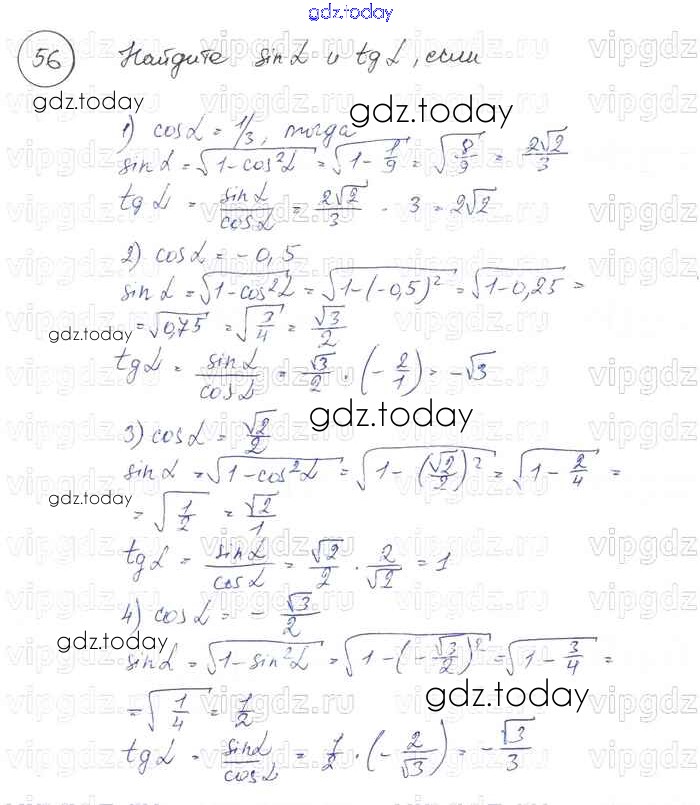 gdz.today
56 Найдите sin α и tg α, если
gdz.today
1) cos α = 1/3, тогда
gdz.today
sin α = √(1 - cos²α) = √(1 - 1/9) = √(8/9) = 2√2/3
tg α = sin α/cos α = 2√2/3 · 3 = 2√2
2) cos α = - 0,5
sin α = √(1 - cos²α) = √(1 - (-0,5)²) = √(1 - 0,25) =
gdz.today
= √0,75 = √(3/4) = √3/2
tg α = sin α/cos α = √3/2 · (- 2/1) = - √3
gdz.today
3) cos α = √2/2
sin α = √(1 - cos²α) = √(1 - (√2/2)²) = √(1 - 2/4) =
gdz.today
= √(1/2) = √2/1
tg α = sin α/cos α = √2/2 · 2/√2 = 1
4) cos α = - √3/2
gdz.today
sin α = √(1 - sin²α) = √(1 - (- √3/2)²) = √(1 - 3/4) =
gdz.today
= √(1/4) = 1/2
tg α = sin α/cos α = 1/2 · (- 2/√3) = - √3/3
gdz.today